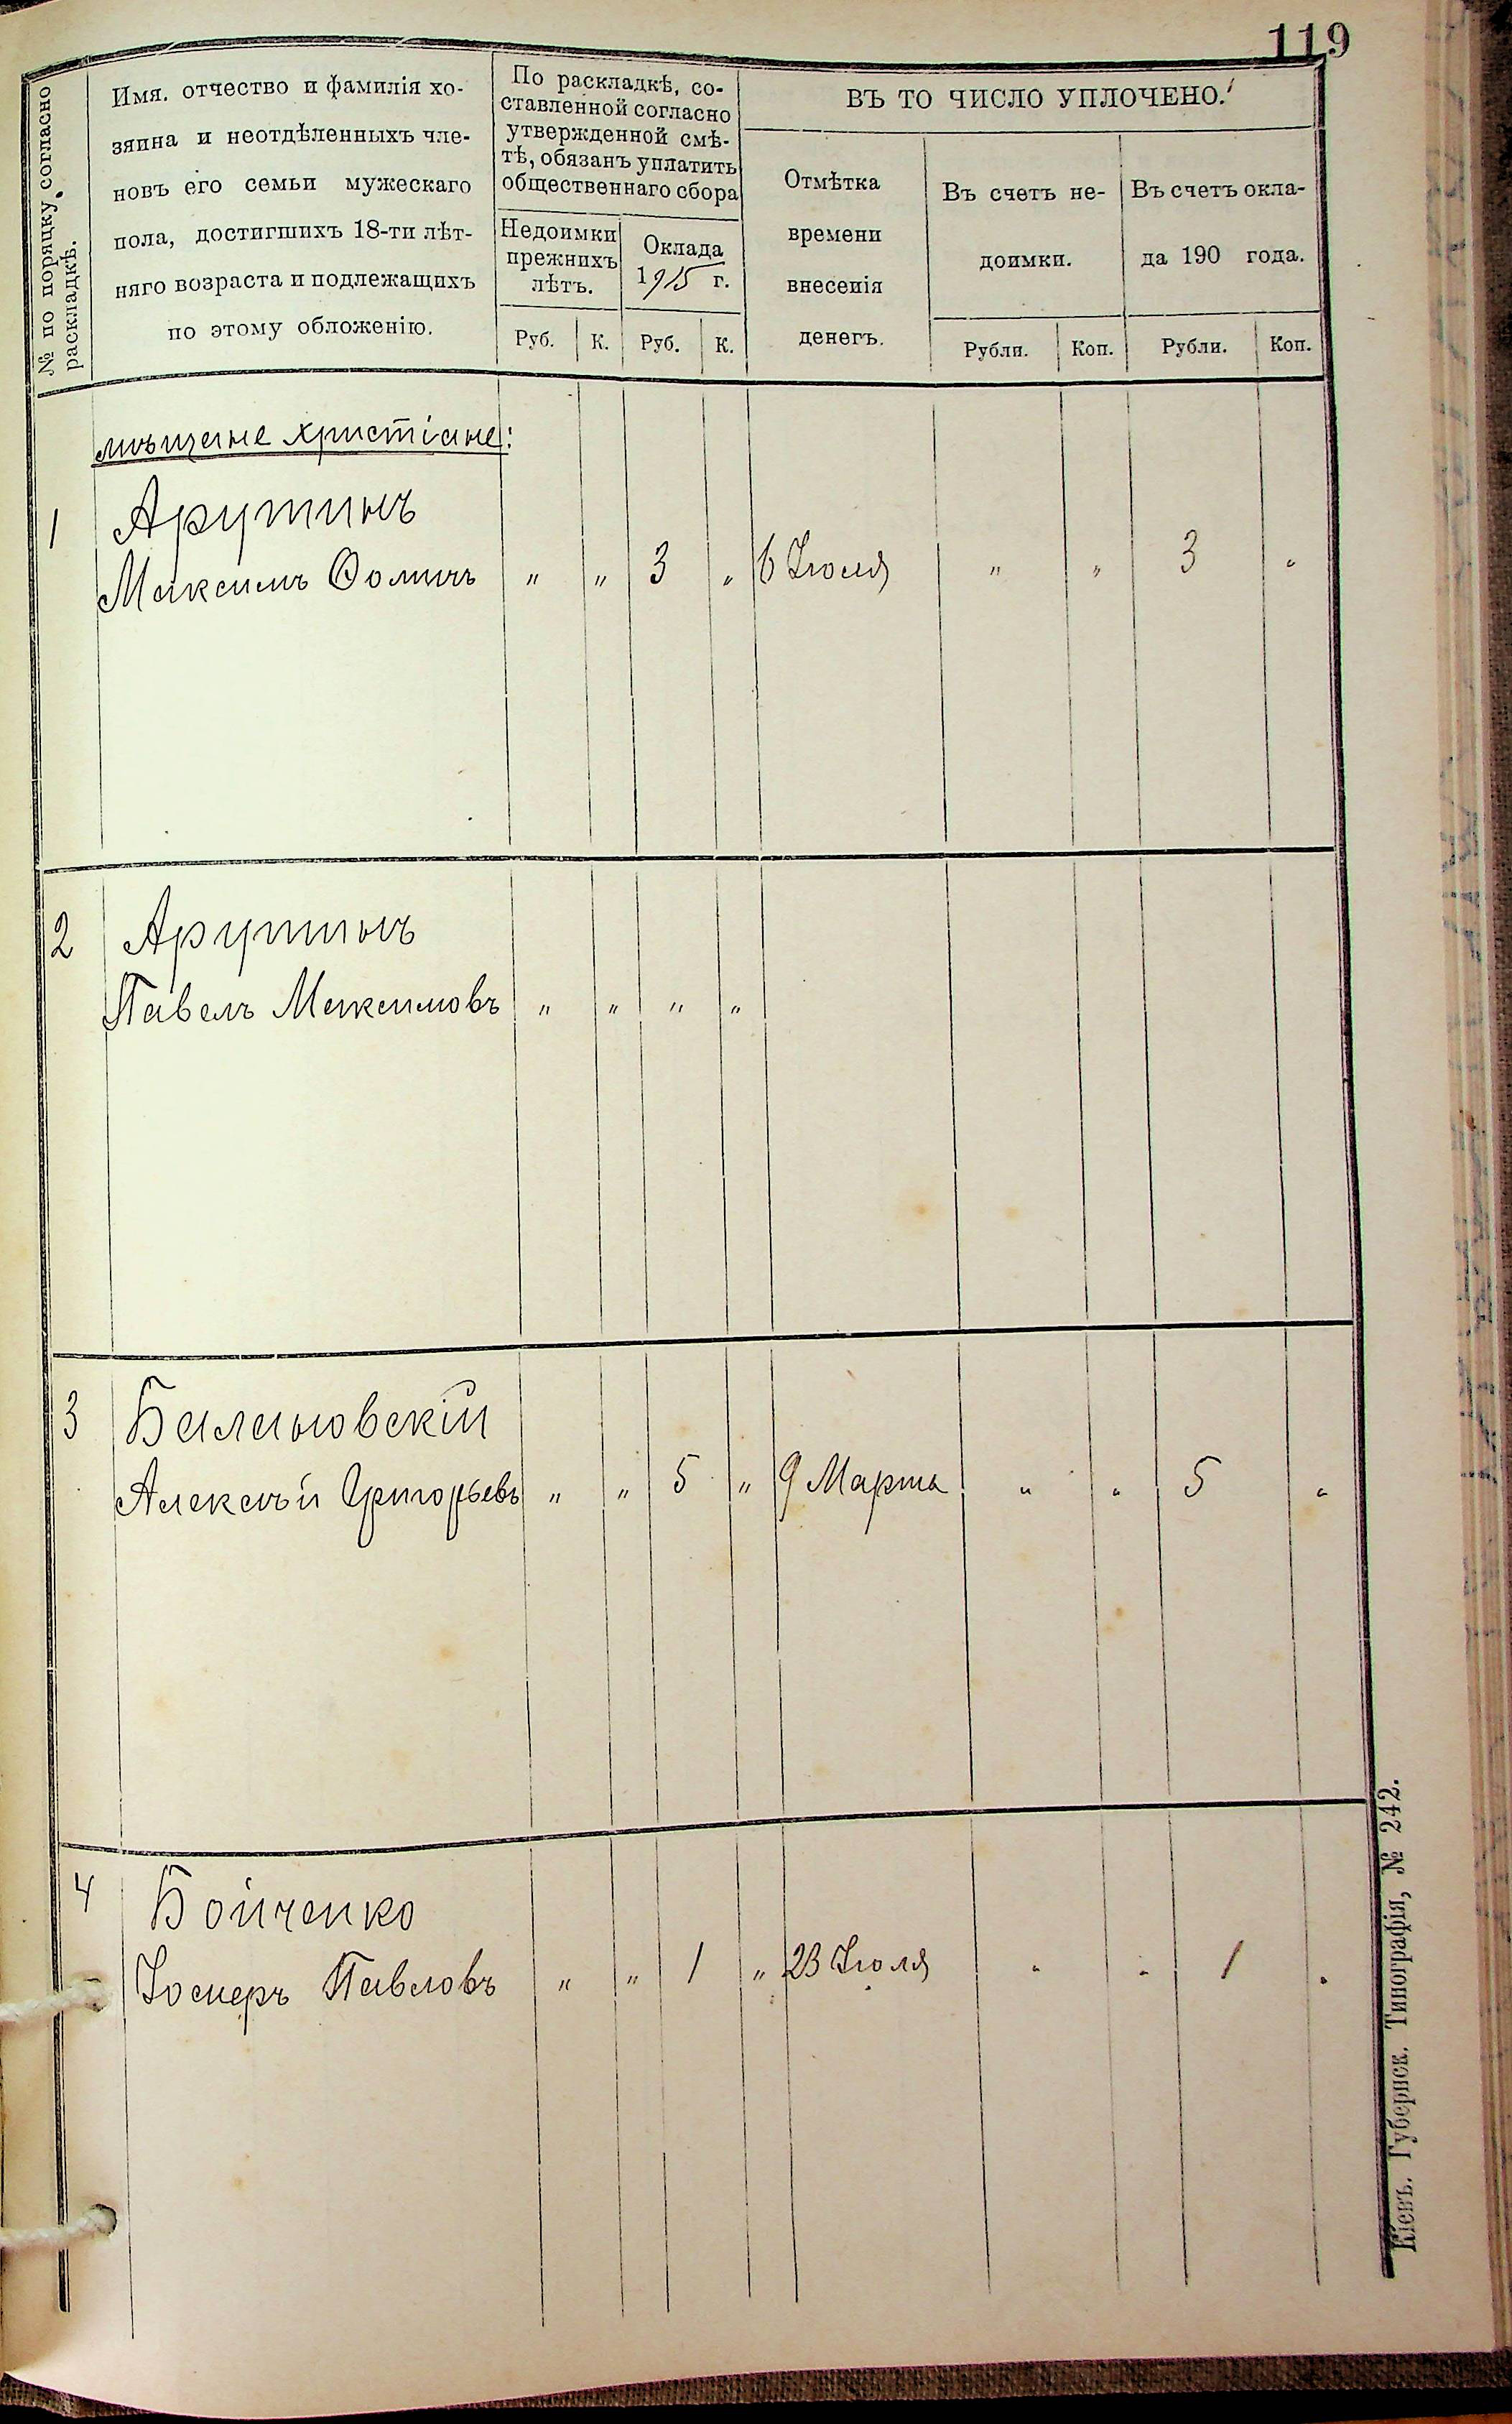 119
№ по поряцку согласно
раскладкѣ.
Имя. отчество и фамилія хо-
зяина и неотдѣленныхъ чле-
новъ его семьи мужескаго
пола, достигшихъ 18-ти лѣт-
няго возраста и подлежащихъ
по этому обложенію.
По раскладкѣ, со-
ставленной согласно
утвержденной смѣ-
тѣ, обязанъ уплатить
общественнаго сбора
Недоимки
прежнихъ
лѣтъ.
Руб. К.
Оклада
1915 г.
Руб. К.
ВЪ ТО ЧИСЛО УПЛОЧЕНО.
Отмѣтка
времени
внесенія
денегъ.
Въ счетъ не-
доимки.
Рубли. Коп.
Въ счетъ окла-
да 190 года.
Рубли. Коп.
мѣщане христіане:
1 Арутинъ
Максимъ Ѳомичъ " " 3 " 6 Іюля " " 3 "
2 Арутинъ
Павелъ Максимовъ " " " "
3 Балановскій
Алексѣй Григорьевъ " " 5 " 9 Марта " " 5 "
4 Бойченко
Іосиѳъ Павловъ " " 1 " 23 Іюля " " 1 "
Кіевъ. Губернск. Типографія, № 242.